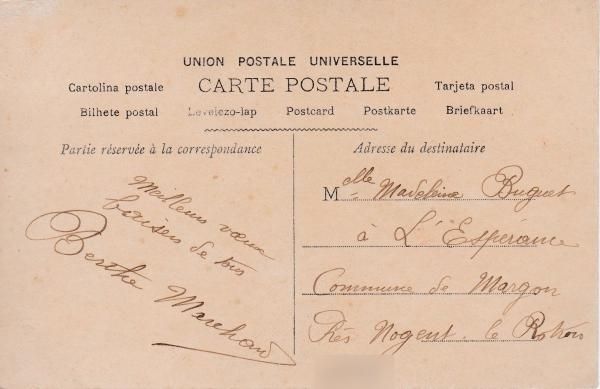 UNION POSTALE UNIVERSELLE
Cartolina postale CARTE POSTALE Tarjeta postal
Bilhete postal Levelezo-lap Postcard Postkarte Briefkaart
Partie réservée à la correspondance
Meilleurs vœux
baisers de tous
Berthe Marchand
Adresse du destinataire
Melle Madeleine Buguet
à L'Espérance
Commune de Margon
Près Nogent-le Rotrou